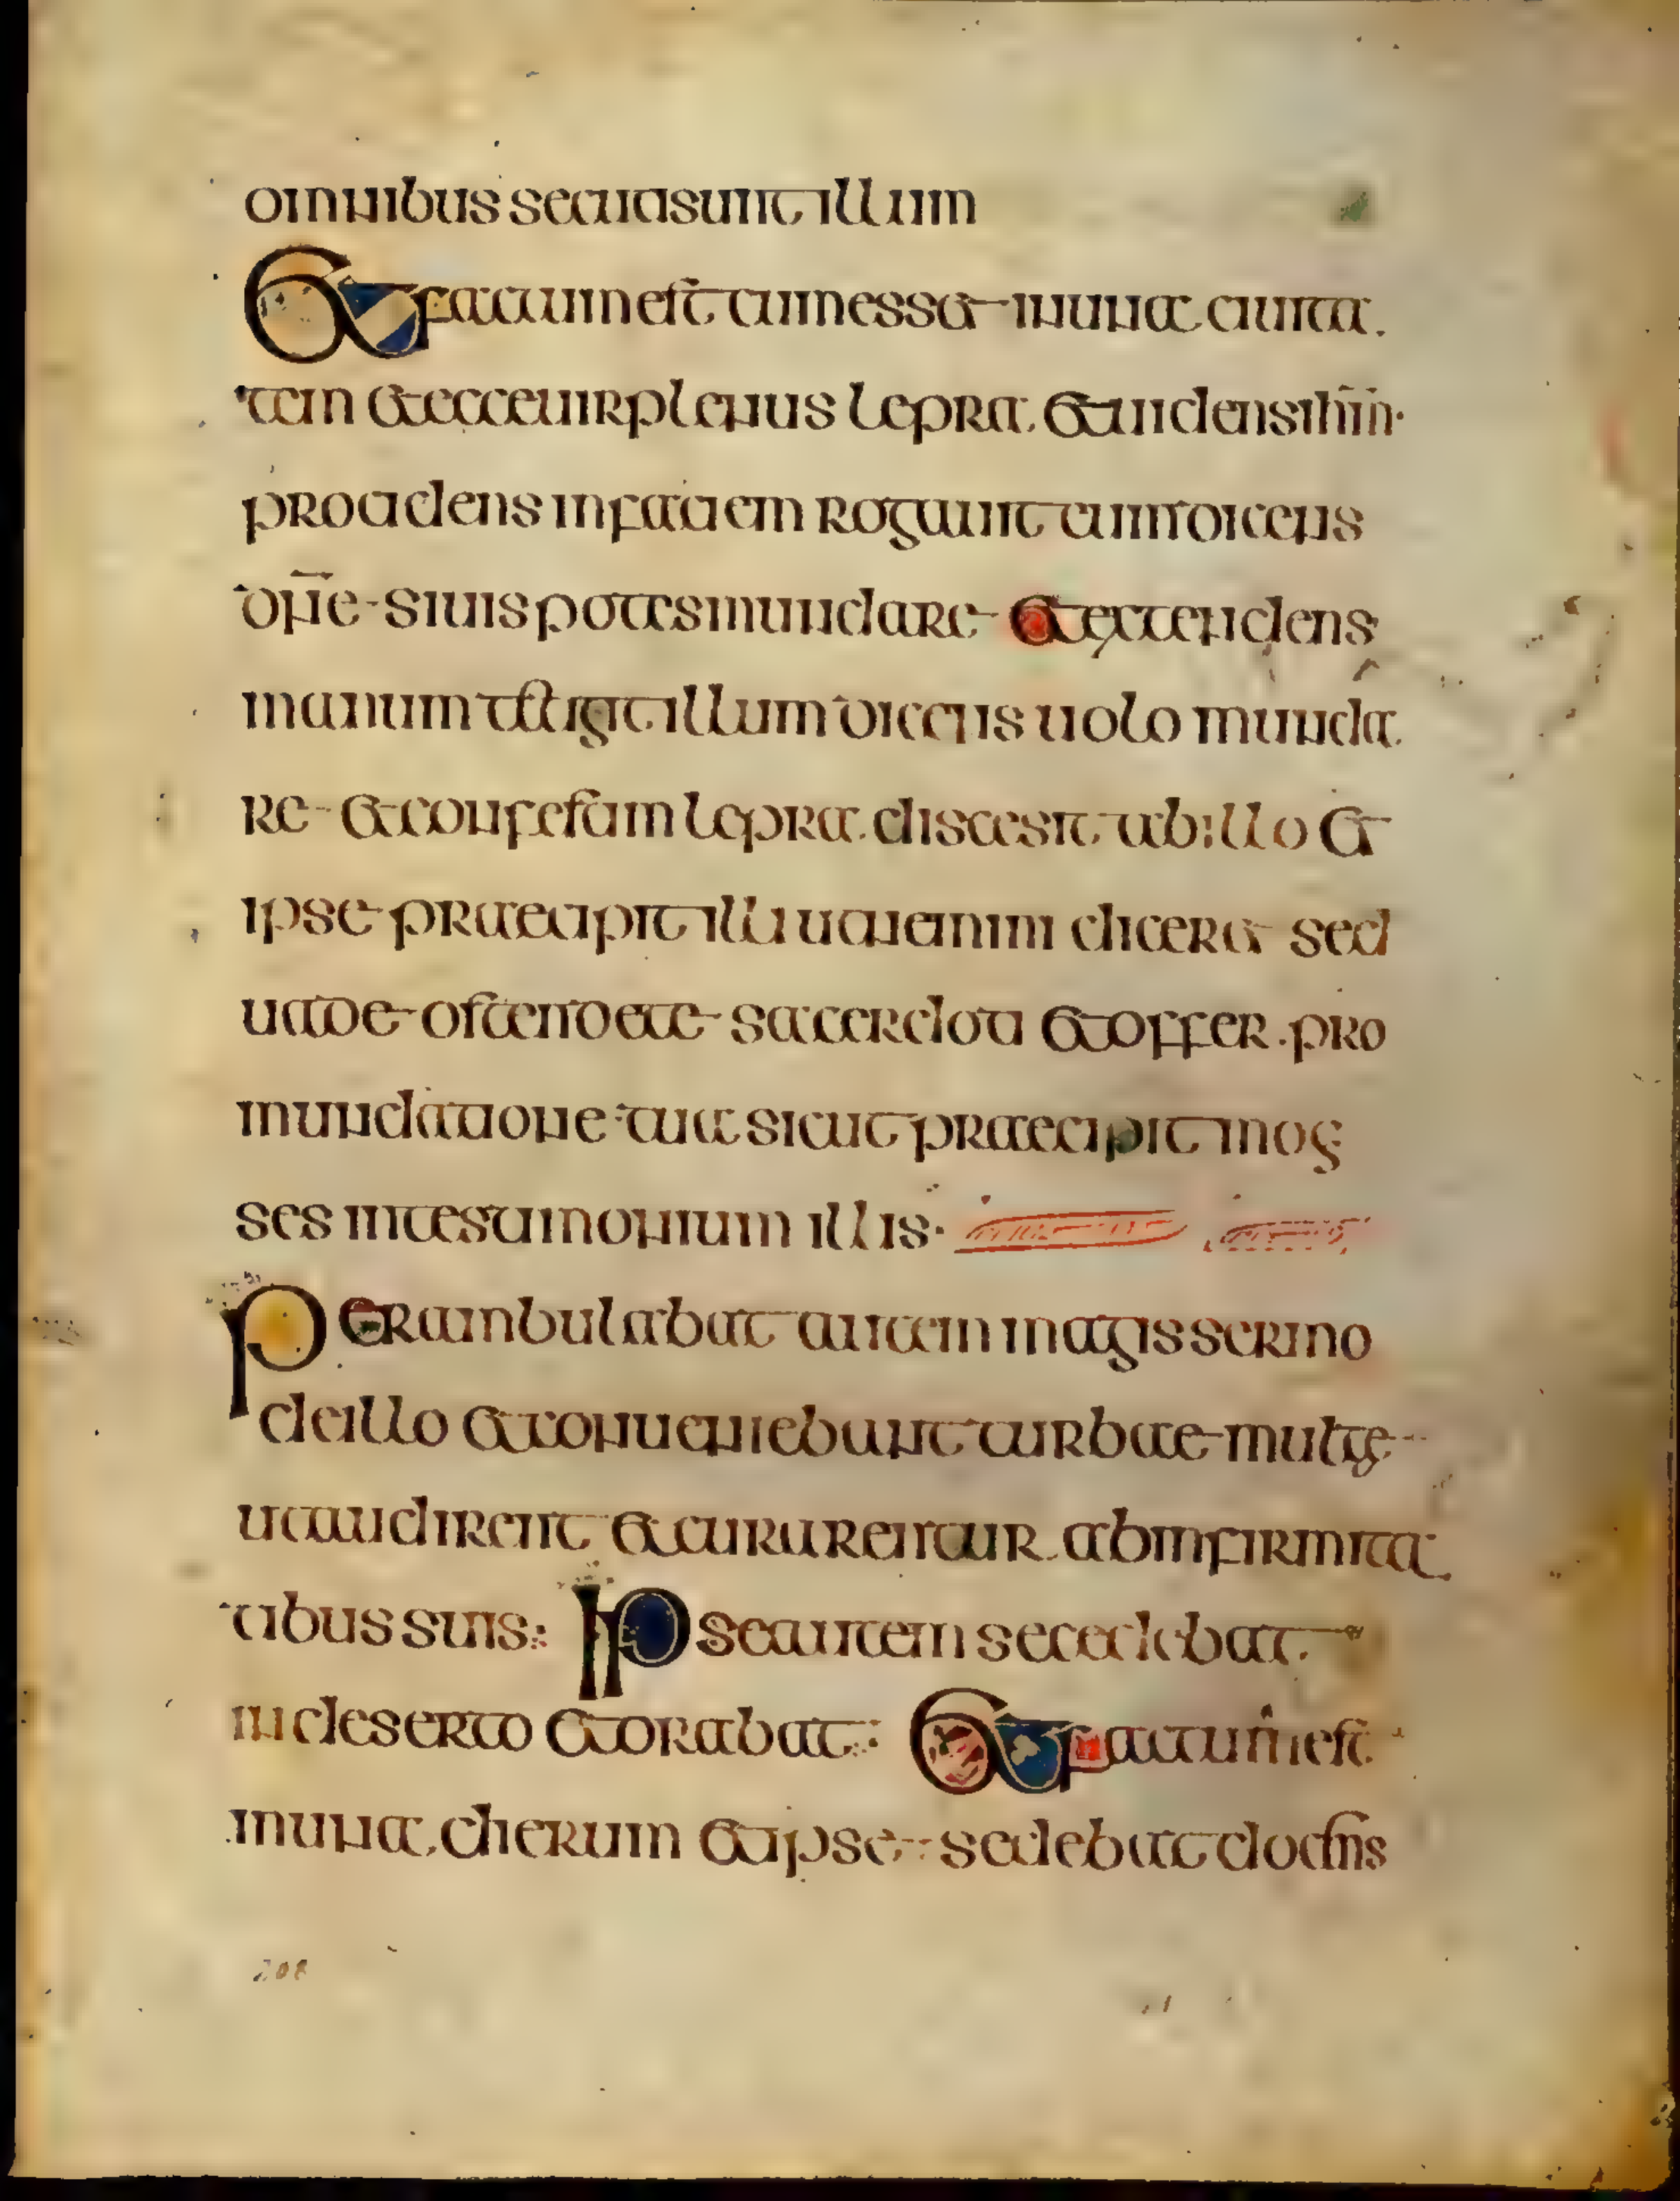 omnibus secuti sunt illum
Et factum est cum esset in una ciuita
tem et ecce uir plenus lepra et uidens ihm
procidens in faciem rogauit eum dicens
dne si uis potes mundare et extendens
manum tetigit illum dicens uolo munda
re et confestim lepra discesit ab illo et
ipse praecipit illi ut nemini diceret sed
uade ostende te sacerdoti et offer pro
mundatione tua sicut praecipit moy
ses in testimonium illis
Perambulabat autem magis sermo
de illo et conueniebant turbae multe
ut audirent et curarentur ab infirmita
tibus suis Ipse autem secedebat
in deserto et orabat Et factum est
in una dierum et ipse sedebat docens
208